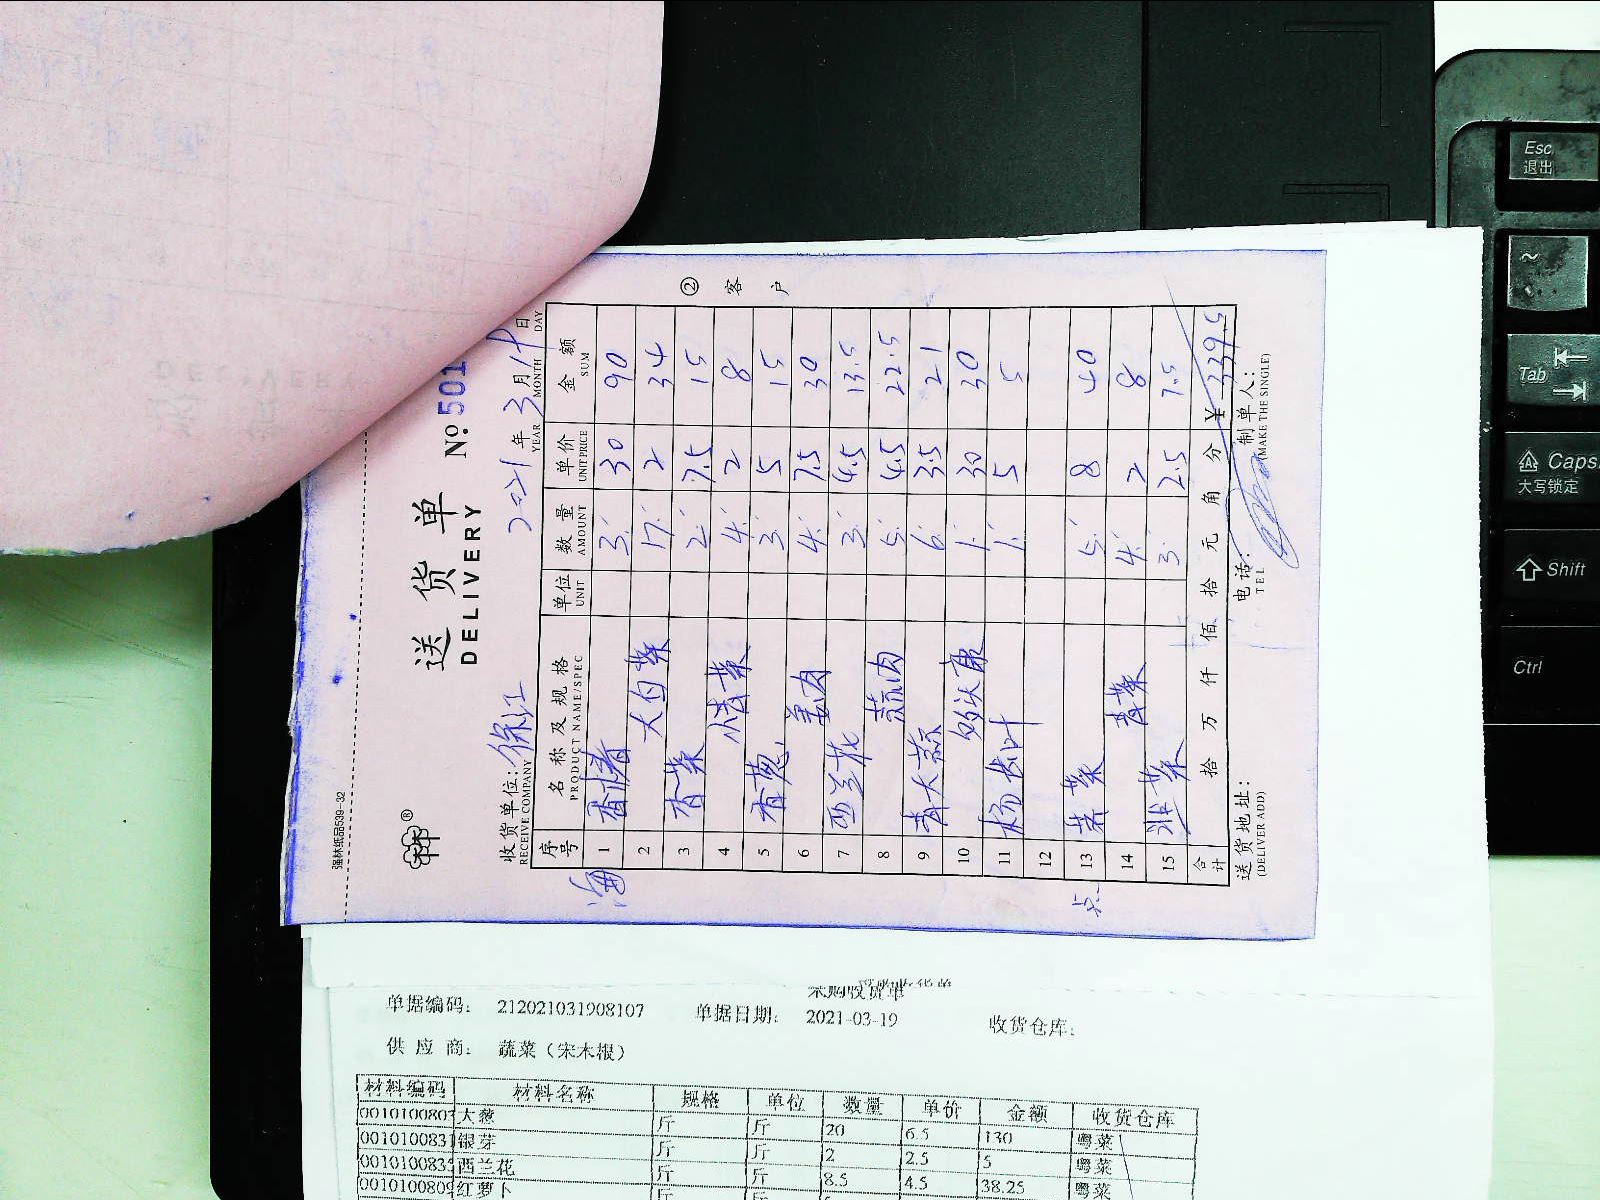 强林纸品539-32
送货单
DELIVERY
No. 501
收货单位: 徐江 2021年3月19日
RECEIVE COMPANY YEAR MONTH DAY
② 客户
序号 名称及规格 单位 数量 单价 金额
PRODUCT NAME/SPEC UNIT AMOUNT UNIT PRICE SUM
海
1 3. 30 90
2 大白菜 17. 2 34
3 香菜 2. 7.5 15
4 4. 2 8
5 香葱 3. 5 15
6 姜肉 4. 7.5 30
7 西兰花 3. 4.5 13.5
8 蒜肉 5. 4.5 22.5
9 青大蒜 6. 3.5 21
10 1. 30 30
11 1. 5 5
12
13 5. 8 40
14 青菜 4. 2 8
15 韭菜 3. 2.5 7.5
合计 拾 万 仟 佰 拾 元 角 分 ¥ 339.5
送货地址: 电话: 制单人:
(DELIVER ADD) TEL (MAKE THE SINGLE)
采购收货单
单据编码: 212021031908107 单据日期: 2021-03-19 收货仓库:
供应商: 蔬菜（宋木根）
材料编码 材料名称 规格 单位 数量 单价 金额 收货仓库
0010100803 大葱 斤 斤 20 6.5 130 粤菜
001010083 银芽 斤 斤 2 2.5 5 粤菜
001010083 西兰花 斤 斤 8.5 4.5 38.25 粤菜
001010080 红萝卜
Esc
退出
~
Tab
Caps
大写锁定
Shift
Ctrl